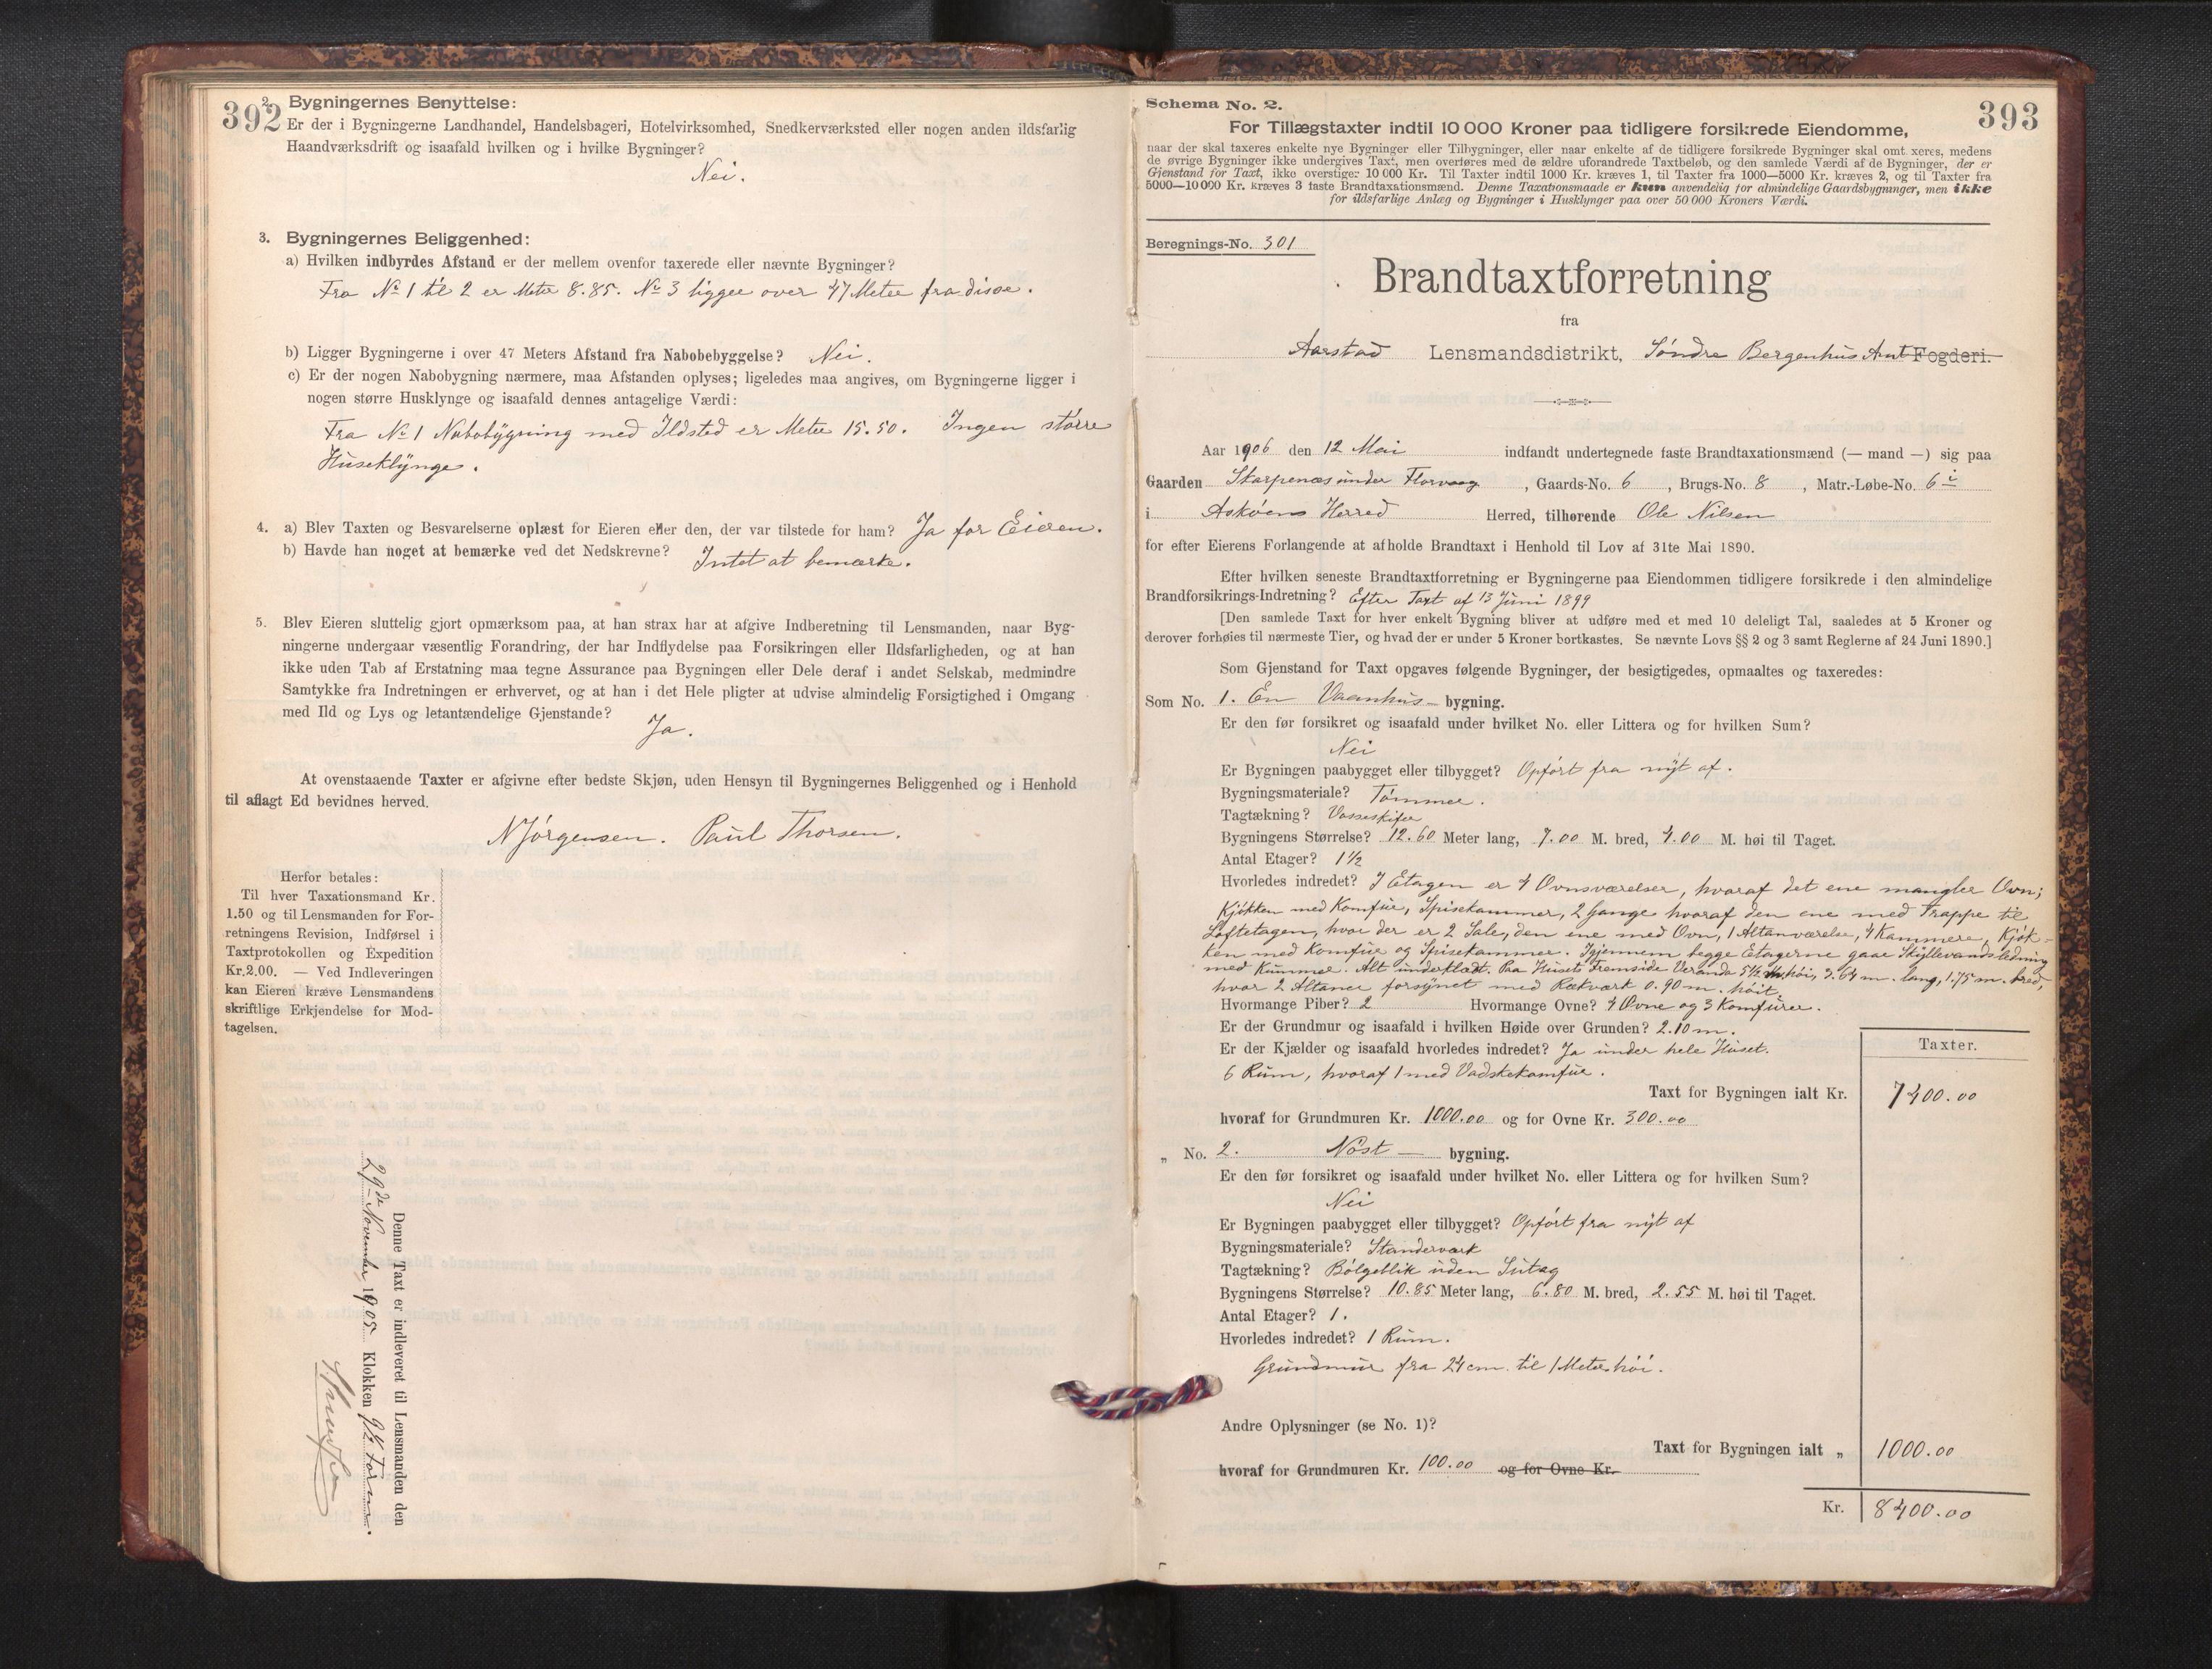 392
2. Bygningernes Benyttelse:
Er der i Bygningerne Landhandel, Handelsbageri, Hotelvirksomhed, Snedkerværksted eller nogen anden ildsfarlig
Haandværksdrift og isaafald hvilken og i hvilke Bygninger?
Nei.
3. Bygningernes Beliggenhed:
a) Hvilken indbyrdes Afstand er der mellem ovenfor taxerede eller nævnte Bygninger?
Fra No 1 til 2 er Meter 8.85. No 3 ligger over 47 Meter fra disse.
b) Ligger Bygningerne i over 47 Meters Afstand fra Nabobebyggelse? Nei.
c) Er der nogen Nabobygning nærmere, maa Afstanden oplyses; ligeledes maa angives, om Bygningerne ligger i
nogen større Husklynge og isaafald dennes antagelige Værdi:
Fra No 1 Nabobygning med Ildsted er Meter 15.50. Ingen større
Huseklynge.
4. a) Blev Taxten og Besvarelserne oplæst for Eieren eller den, der var tilstede for ham? Ja for Eieren.
b) Havde han noget at bemærke ved det Nedskrevne? Intet at bemærke.
5. Blev Eieren sluttelig gjort opmærksom paa, at han strax har at afgive Indberetning til Lensmanden, naar Byg-
ningerne undergaar væsentlig Forandring, der har Indflydelse paa Forsikringen eller Ildsfarligheden, og at han
ikke uden Tab af Erstatning maa tegne Assurance paa Bygningen eller Dele deraf i andet Selskab, medmindre
Samtykke fra Indretningen er erhvervet, og at han i det Hele pligter at udvise almindelig Forsigtighed i Omgang
med Ild og Lys og letantændelige Gjenstande? Ja.
At ovenstaaende Taxter er afgivne efter bedste Skjøn, uden Hensyn til Bygningernes Beliggenhed og i Henhold
til aflagt Ed bevidnes herved.
N Jørgensen. Paul Thorsen.
Herfor betales:
Til hver Taxationsmand Kr.
1.50 og til Lensmanden for For-
retningens Revision, Indførsel i
Taxtprotokollen og Expedition
Kr. 2.00. — Ved Indleveringen
kan Eieren kræve Lensmandens
skriftlige Erkjendelse for Mod-
tagelsen.
Denne Taxt er indleveret til Lensmanden den
29de November 1905 Klokken 9½ Form.
393
Schema No. 2.
For Tillægstaxter indtil 10 000 Kroner paa tidligere forsikrede Eiendomme,
naar der skal taxeres enkelte nye Bygninger eller Tilbygninger, eller naar enkelte af de tidligere forsikrede Bygninger skal omt xeres, medens
de øvrige Bygninger ikke undergives Taxt, men overføres med de ældre uforandrede Taxtbeløb, og den samlede Værdi af de Bygninger, der er
Gjenstand for Taxt, ikke overstiger 10 000 Kr. Til Taxter indtil 1000 Kr. kræves 1, til Taxter fra 1000—5000 Kr. kræves 2, og til Taxter fra
5000—10 000 Kr. kræves 3 faste Brandtaxationsmænd. Denne Taxationsmaade er kun anvendelig for almindelige Gaardsbygninger, men ikke
for ildsfarlige Anlæg og Bygninger i Husklynger paa over 50 000 Kroners Værdi.
Beregnings-No. 301
Brandtaxtforretning
fra
Aarstad Lensmandsdistrikt, Søndre Bergenhus Amt Fogderi.
Aar 1906 den 12 Mai indfandt undertegnede faste Brandtaxationsmænd (— mand —) sig paa
Gaarden Skarpenæs under Florvaag, Gaards-No. 6, Brugs-No. 8, Matr.-Løbe-No. 6 i
i Askøens Herred Herred, tilhørende Ole Nilsen
for efter Eierens Forlangende at afholde Brandtaxt i Henhold til Lov af 31te Mai 1890.
Efter hvilken seneste Brandtaxtforretning er Bygningerne paa Eiendommen tidligere forsikrede i den almindelige
Brandforsikrings-Indretning? Efter Taxt af 13 Juni 1899
[Den samlede Taxt for hver enkelt Bygning bliver at udføre med et med 10 deleligt Tal, saaledes at 5 Kroner og
derover forhøies til nærmeste Tier, og hvad der er under 5 Kroner bortkastes. Se nævnte Lovs §§ 2 og 3 samt Reglerne af 24 Juni 1890.]
Som Gjenstand for Taxt opgaves følgende Bygninger, der besigtigedes, opmaaltes og taxeredes:
Som No. 1. En Vaanhus- bygning.
Er den før forsikret og isaafald under hvilket No. eller Littera og for hvilken Sum?
Nei
Er Bygningen paabygget eller tilbygget? Opført fra nyt af.
Bygningsmateriale? Tømmer.
Tagtækning? Vosseskifer
Bygningens Størrelse? 12.60 Meter lang, 7.00 M. bred, 4.00 M. høi til Taget.
Antal Etager? 1½
Hvorledes indredet? I Etagen er 4 Ovnsværelser, hvoraf det ene mangler Ovn;
Kjøkken med Komfur, Spisekammer, 2 Gange hvoraf den ene med Trappe til
Loftetagen, hvor der er 2 Sale, den ene med Ovn, 1 Altanværelse, 4 Kammere, Kjøk-
ken med Komfur og Spisekammer. Igjennem begge Etagerne gaar Skyllevandsledning
med Kummer. Alt underklædt. Paa Husets Fremside Veranda 5½ m høi, 3.64 m. lang, 1.75 m. bred,
hvor 2 Altaner forsynet med Rækværk 0.90 m. høit.
Hvormange Piber? 2 Hvormange Ovne? 4 Ovne og 3 Komfurer.
Er der Grundmur og isaafald i hvilken Høide over Grunden? 2.10 m.
Er der Kjælder og isaafald hvorledes indredet? Ja under hele Huset.
6 Rum, hvoraf 1 med Vadskekomfur.
Taxter.
Taxt for Bygningen ialt Kr. 7400.00
hvoraf for Grundmuren Kr. 1000.00 og for Ovne Kr. 300.00
„ No. 2. Nøst — bygning.
Er den før forsikret og isaafald under hvilket No. eller Littera og for hvilken Sum?
Nei
Er Bygningen paabygget eller tilbygget? Opført fra nyt af
Bygningsmateriale? Standerværk
Tagtækning? Bølgeblik uden Sutag
Bygningens Størrelse? 10.85 Meter lang, 6.80 M. bred, 2.55 M. høi til Taget.
Antal Etager? 1.
Hvorledes indredet? 1 Rum.
Grundmur fra 24 cm. til 1 Meter høi.
Andre Oplysninger (se No. 1)?
Taxt for Bygningen ialt „ 1000.00
hvoraf for Grundmuren Kr. 100.00 og for Ovne Kr.
Kr. 8400.00